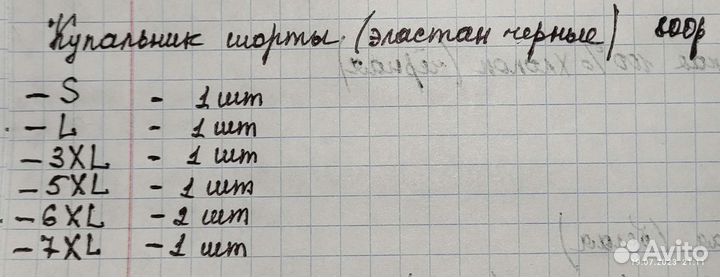 Купальник шорты (эластан черные) 800р
- S - 1 шт
- L - 1 шт
- 3XL - 1 шт
- 5XL - 1 шт
- 6XL - 2 шт
- 7XL - 1 шт
Avito
19.07.2023 21:11